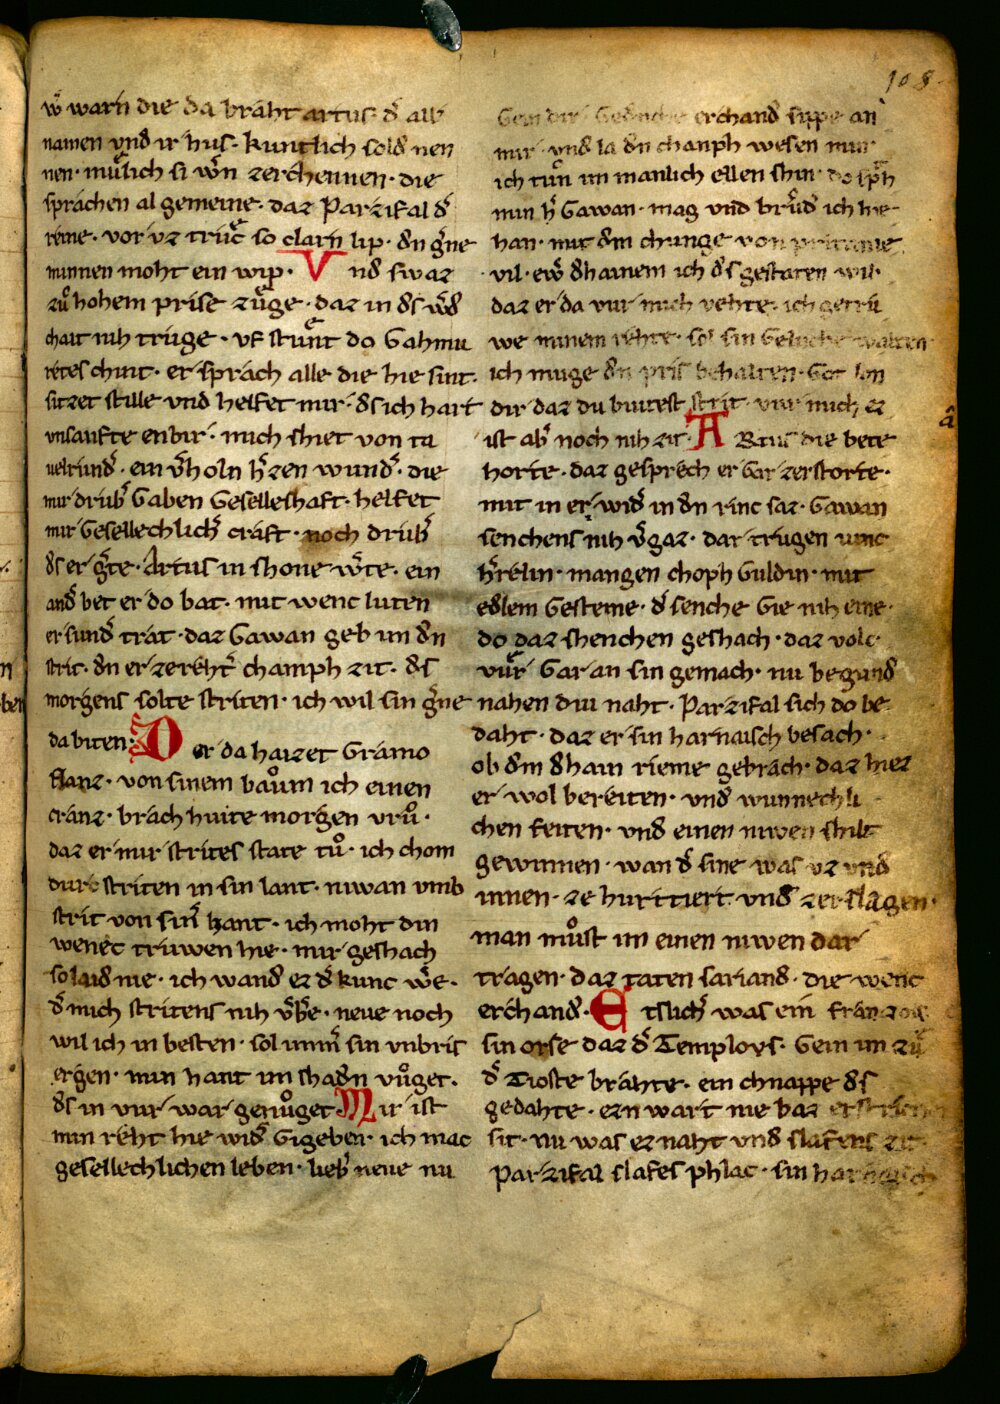 108
wͤ warn die da braht artus· d̄ all
namen vnd ir hus· kuntlich sold nen
nen· muͤlich si wrn zerchennen· die
sprachen al gemeine· daz Parzifal d̄
reine· vor vz truͤc so clarn lip· dn ḡne
minnen moht ein wip· Vnd swaz
zuͦ hohem prise zuͤge· daz in ds wd
chait nih truge· vf stuͤnt do Gahmu
retes chint· er sprach alle die hie sint·
sitzet stille vnd helfet mir· ds ich hart
vnsaufte enbir· mich shiet von ta
uelrund̄· ein v̄holn h̄zen wund̄· die
mir drub̄ Gaben Geselleshaft· helfet
mir Gesellechlich̄ craft· noch drub̄
ds er ḡte· Artus in shone w̄te· ein
and̄ bet er do bat· mit wenc luten
er sund̄ trat· daz Gawan geb im dn
strit· dn er ze reht̄ champh zit· ds
morgens solte striten· ich wil sin ḡne
da biten· Der da haizet Gramo
flanz· von sinem baͦum ich einen
cranz· brach huite morgen vruͦ·
daz er mir strites state tuͦ· ich chom
durc striten in sin lant· niwan vmb
strit von sin̄ hant· ich moht din
wenec truwen hie· mir geshach
so laid nie· ich wand ez d̄ kunc w̄e·
d̄ mich stritens nih v̄b̄e· neue noch
wil ich in besten· sol imm̄ sin vnbris
ergen· min hant im shadn vuͦget·
ds in vur war genuͦget Mir ist
min reht hie wid̄ Gigeben· ich mac
gesellechlichen leben· lieb̄ neue nu
Gein dir· Gedenche erchand sippe an
mir· vnd la dn chanph wesen min
ich tuͦn im manlich ellen shin· do sp̄h
min h̄ Gawan· mag vnd bruͤd̄ ich hie
han· mit dm chunge von
vil· ew̄ dhainem ich ds gestaten wil·
daz er da vur mich vehte· ich getru
we minem rehte· sol sin Geluche walten
ich muge dn pris behalten· Got lon
dir daz du buitest strit· vur mich ez
ist ab̄ noch nih zit· ARtus die bete
horte· daz gesprech er Gar zerstorte·
mit in er wid̄ in dn rinc saz· Gawan
senchens nih v̄gaz· dar trugen iunc
h̄relin· mangen choph Guldin· mit
edlem Gesteine· d̄ senche Gie nih eine·
do daz shenchen geshach· daz volc·
vuͤr Gar an sin gemach· nu begund
nahen diu naht· Parzifal sich do be
daht· daz er sin harnaisch besach·
ob dm dhain rieme gebrach· daz hiez
er wol bereiten· vnd wunnechli
chen feiten· vnd einen niwen shilt
gewinnen· wan d̄ sine was vz vnd
innen· ze hurttiert· vnd zerslagen·
man muͦst im einen niwen dar
tragen· daz taten sariand· die wenc
erchand· Etslich̄ was ein franzois
sin orse daz d̄ Temploys· Gein im zuͤ
d̄ Tioste brahte· ein chnappe ds
gedahte· ezn wart nie baz
sit· nu was ez naht vnd slafens zit
Parzifal slafes phlac· sin harnasch